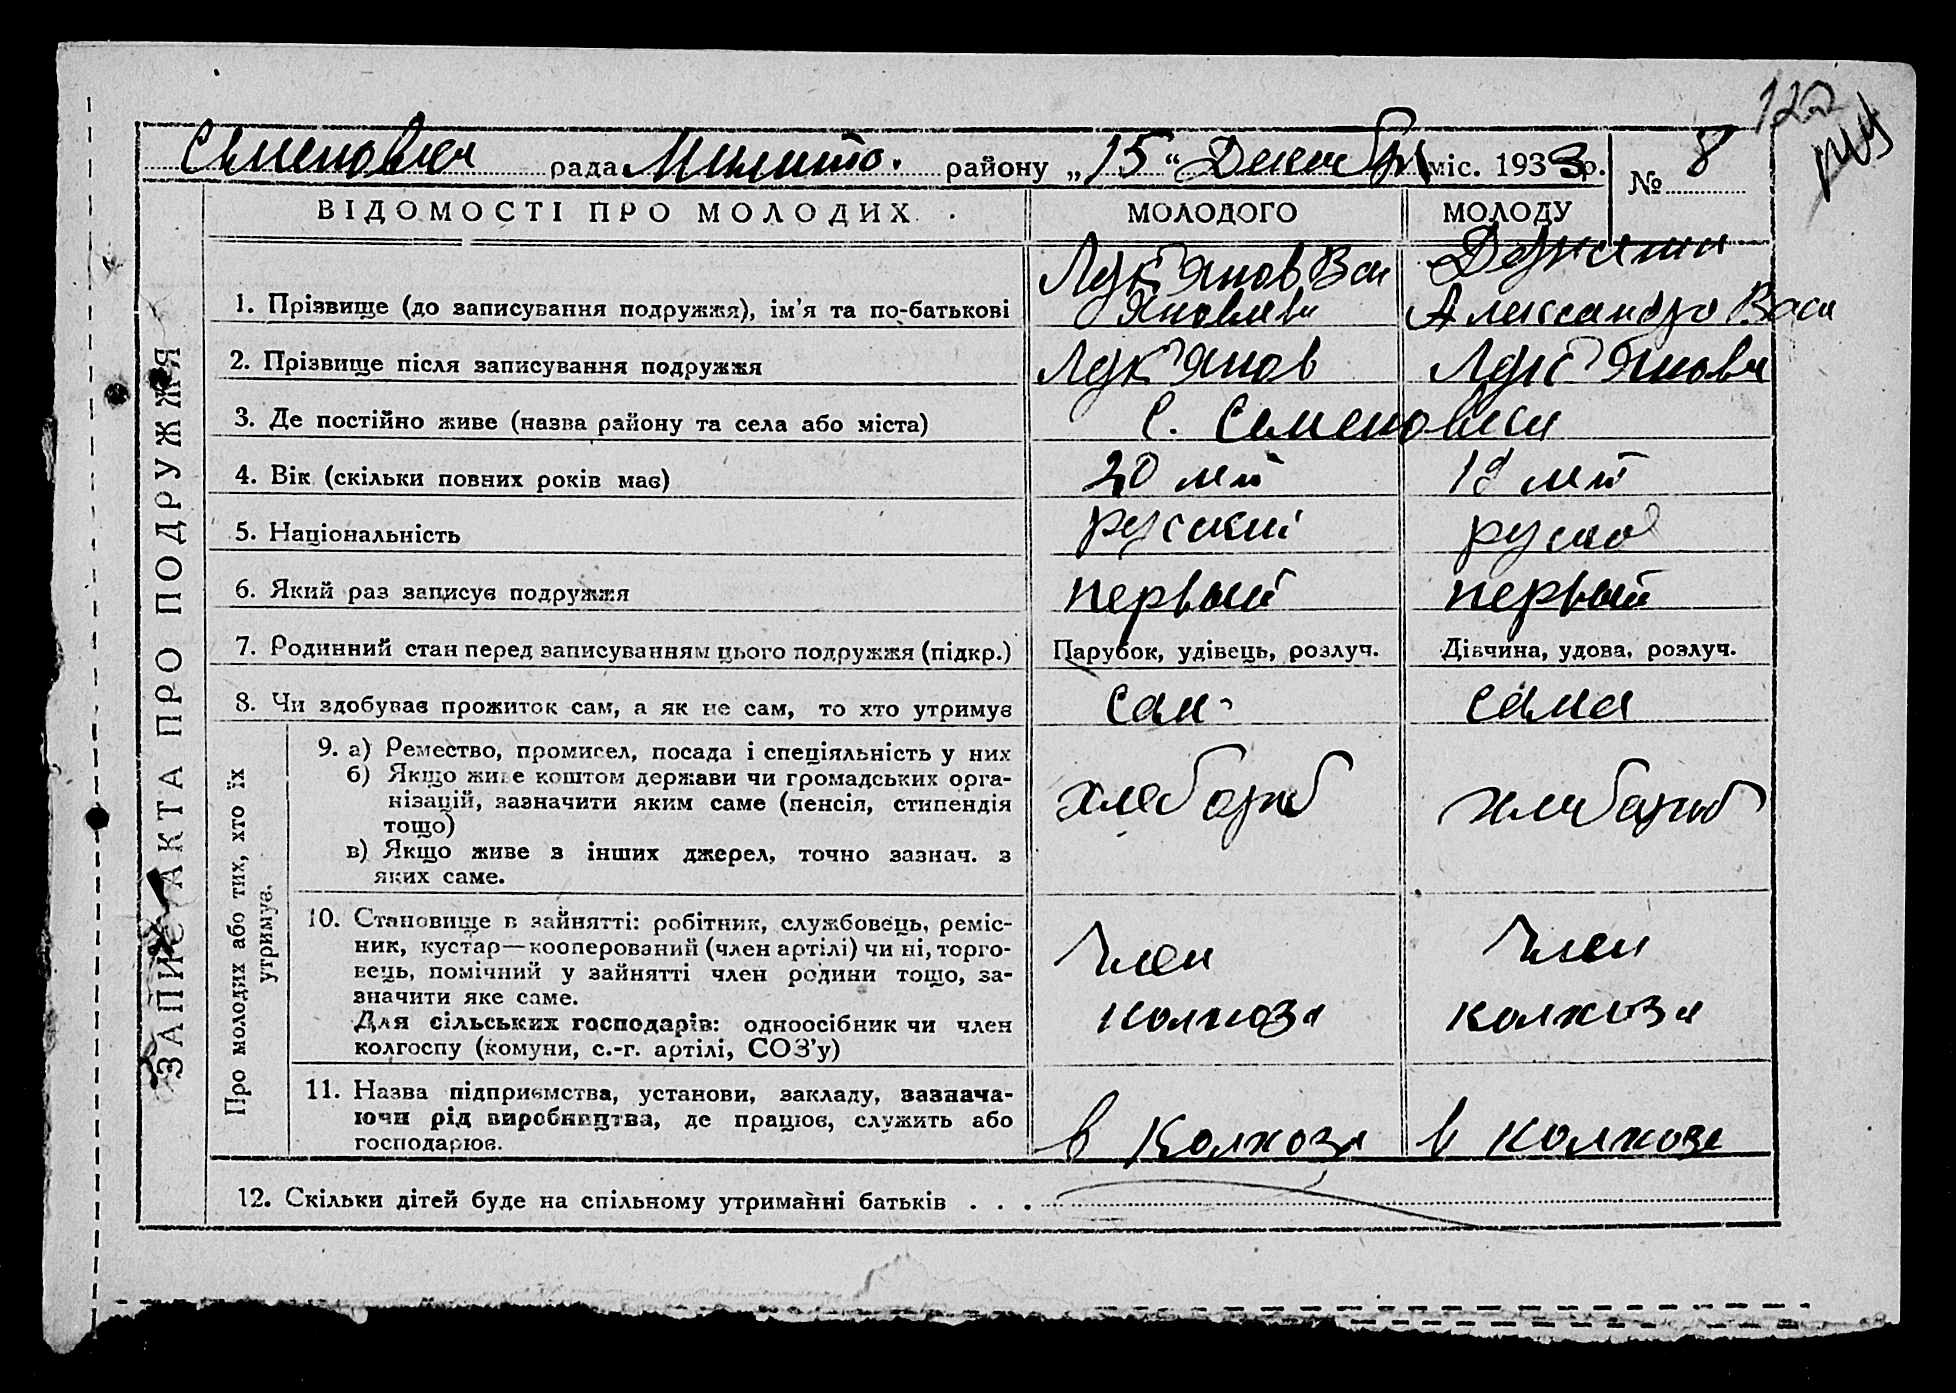 Семеновск рада Мелито. району „15“ Декабря міс. 1933 р. № 8
122
ВІДОМОСТІ ПРО МОЛОДИХ МОЛОДОГО МОЛОДУ
ЗАПИС АКТА ПРО ПОДРУЖЖЯ
1. Прізвище (до записування подружжя), ім'я та по-батькові Лук'янов Вас Яковлев Александра Васи
2. Прізвище після записування подружжя Лук'янов Лук'янова
3. Де постійно живе (назва району та села або міста) с. Семеновка
4. Вік (скільки повних років має) 20 лет 19 лет
5. Національність русский руская
6. Який раз записує подружжя первый первый
7. Родинний стан перед записуванням цього подружжя (підкр.) Парубок, удівець, розлуч. Дівчина, удова, розлуч.
8. Чи здобуває прожиток сам, а як не сам, то хто утримує сам сама
Про молодих або тих, хто їх
утримує.
9. а) Ремество, промисел, посада і спеціяльність у них
б) Якщо живе коштом держави чи громадських орга-
нізацій, зазначити яким саме (пенсія, стипендія
тощо) хлебороб хлебороб
в) Якщо живе з інших джерел, точно зазнач. з
яких саме.
10. Становище в зайнятті: робітник, службовець, реміс-
ник, кустар—кооперований (член артілі) чи ні, торго-
вець, помічний у зайнятті член родини тощо, за-
значити яке саме. член член
Для сільських господарів: одноосібник чи член
колгоспу (комуни, с.-г. артілі, СОЗ'у) колхоза колхоза
11. Назва підприємства, установи, закладу, зазнача-
ючи рід виробництва, де працює, служить або
господарює. в колхозе в колхозе
12. Скільки дітей буде на спільному утриманні батьків . . .